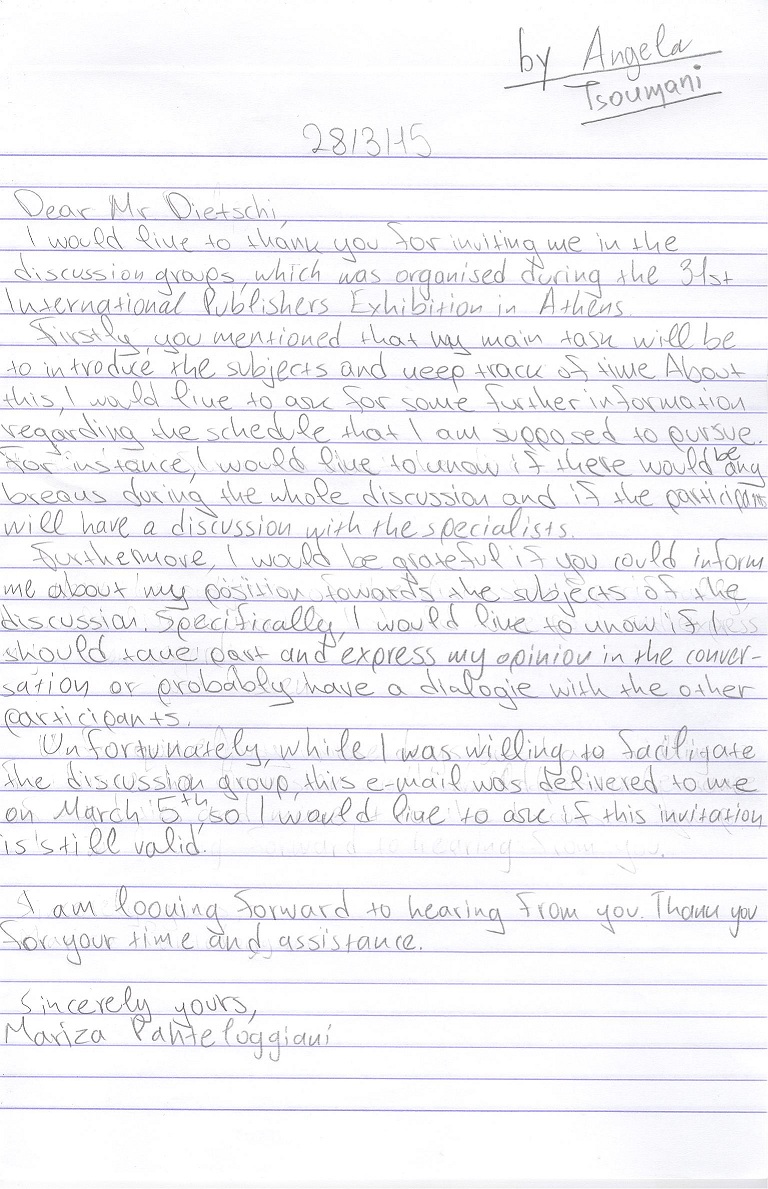 by Angela
Tsoumani
28/3/15
Dear Mr Dietschi,
I would like to thank you for inviting me in the
discussion groups, which was organised during the 31st
International Publishers Exhibition in Athens.
Firstly, you mentioned that my main task will be
to introduce the subjects and keep track of time. About
this, I would like to ask for some further information
regarding the schedule that I am supposed to pursue.
For instance, I would like to know if there would be any
breaks during the whole discussion and if the participants
will have a discussion with the specialists.
Furthermore, I would be grateful if you could inform
me about my position towards the subjects of the
discussion. Specifically, I would like to know if I
should take part and express my opinion in the conver-
sation or probably have a dialogie with the other
participants.
Unfortunately, while I was willing to faciligate
the discussion group, this e-mail was delivered to me
on March 5th, so I would like to ask if this invitation
is still valid.
I am looking forward to hearing from you. Thank you
for your time and assistance.
Sincerely yours,
Mariza Panteloggiani